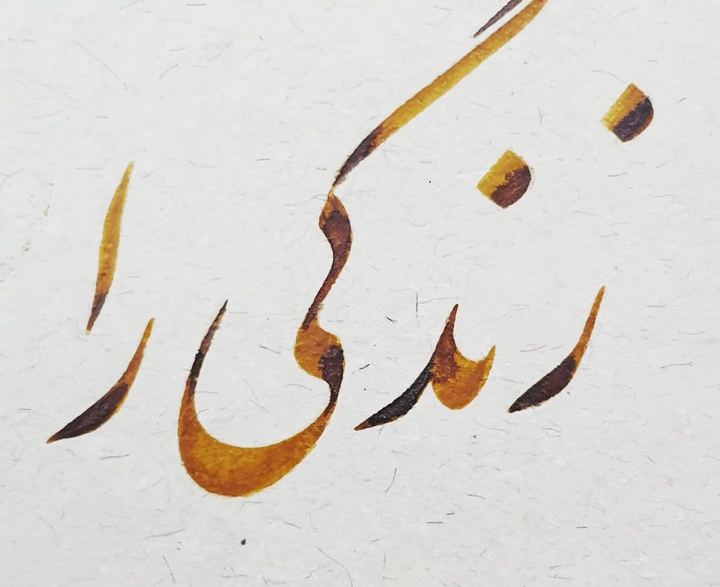 زندگی را